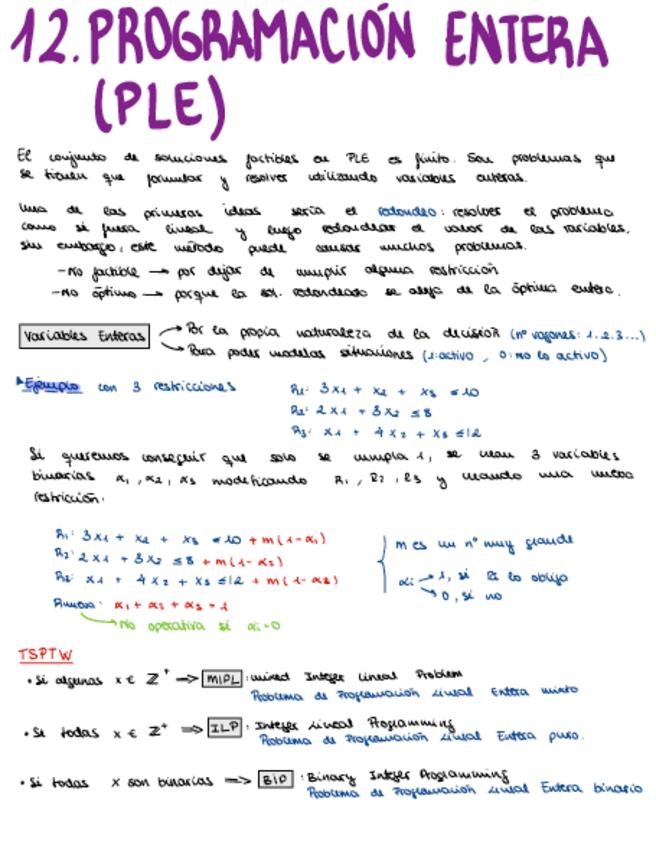 12. PROGRAMACIÓN ENTERA
(PLE)
El conjunto de soluciones factibles en PLE es finito. Son problemas que
se tienen que formular y resolver utilizando variables enteras.
Una de las primeras ideas sería el redondeo: resolver el problema
como si fuera lineal y luego redondear el valor de las variables,
sin embargo, este método puede causar muchos problemas.
-No factible → por dejar de cumplir alguna restricción
-No óptimo → porque la sol. redondeada se aleja de la óptima entera.
Variables Enteras → Por la propia naturaleza de la decisión (nº vagones: 1, 2, 3...)
→ Para poder modelar situaciones (1: activo, 0: no lo activo)
Ejemplo con 3 restricciones
R1: 3x1 + x2 + x3 ≤ 10
R2: 2x1 + 3x2 ≤ 8
R3: x1 + 4x2 + x3 ≤ 12
Si queremos conseguir que solo se cumpla 1, se crean 3 variables
binarias α1, α2, α3 modificando R1, R2, R3 y creando una nueva
restricción.
R1: 3x1 + x2 + x3 ≤ 10 + m(1-α1)
R2: 2x1 + 3x2 ≤ 8 + m(1-α2)
R3: x1 + 4x2 + x3 ≤ 12 + m(1-α3)
Rnueva: α1 + α2 + α3 = 1
→ No operativa si αi=0
m es un nº muy grande
αi → 1, si Ri lo obliga
→ 0, si no
TSPTW
• Si algunas x ∈ Z⁺ ⇒ MIPL: mixed Integer Lineal Problem
Problema de Programación Lineal Entera mixto
• Si todas x ∈ Z⁺ ⇒ ILP: Integer Lineal Programming
Problema de Programación Lineal Entera puro.
• Si todas x son binarias ⇒ BIP: Binary Integer Programming
Problema de Programación Lineal Entera binario